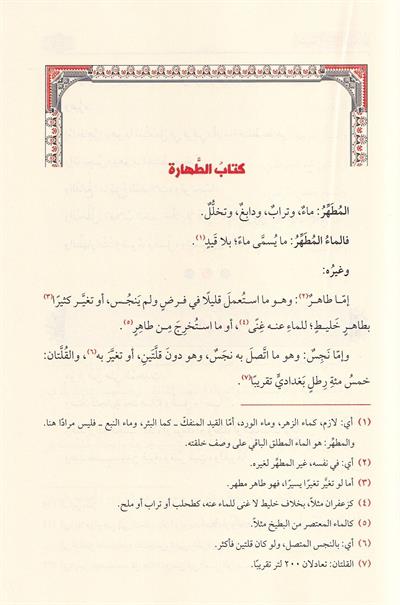 كتابُ الطَّهارة
المُطَهِّرُ: ماءٌ، وترابٌ، ودابغٌ، وتخلُّلٌ.
فالماءُ المُطَهِّرُ: ما يُسمَّى ماءً؛ بلا قَيدٍ(١).
وغيرُه:
إمّا طاهرٌ(٢): وهو ما استُعملَ قليلًا في فرضٍ ولم يَنجُس، أو تغيَّر كثيرًا(٣)
بطاهرٍ خَليطٍ؛ للماءِ عنه غِنًى(٤)، أو ما استُخرِجَ مِن طاهِرٍ(٥).
وإمّا نَجِسٌ: وهو ما اتَّصلَ به نجَسٌ، وهو دونَ قلَّتَينِ، أو تغيَّرَ به(٦)، والقُلَّتان:
خمسُ مئةِ رِطلٍ بَغداديٍّ تقريبًا(٧).
(١) أي: لازم، كماء الزهر، وماء الورد، أمّا القيد المنفكّ ـ كما البئر، وماء النبع ـ فليس مرادًا هنا.
والمطهِّر: هو الماء المطلق الباقي على وصف خلقته.
(٢) أي: في نفسه، غير المطهِّر لغيره.
(٣) أما لو تغيَّر تغيُّرًا يسيرًا، فهو طاهر مطهر.
(٤) كزعفران مثلًا، بخلاف خليط لا غنى للماء عنه، كطحلب أو تراب أو ملح.
(٥) كالماء المعتصر من البطيخ مثلًا.
(٦) أي: بالنجس المتصل، ولو كان قلتين فأكثر.
(٧) القلتان: تعادلان ٢٠٠ لتر تقريبًا.